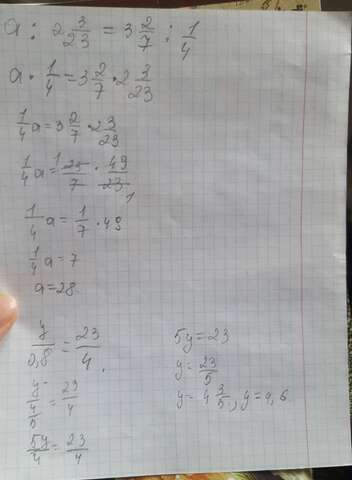 a : 2 3/23 = 3 2/7 : 1/4
a · 1/4 = 3 2/7 · 2 3/23
1/4 a = 3 2/7 · 2 3/23
1/4 a = 1 23/7 · 49/23 1
1/4 a = 1/7 · 49
1/4 a = 7
a = 28
y/0,8 = 23/4
y/(4/5) = 23/4
5y/4 = 23/4
5y = 23
y = 23/5
y = 4 3/5, y = 4,6